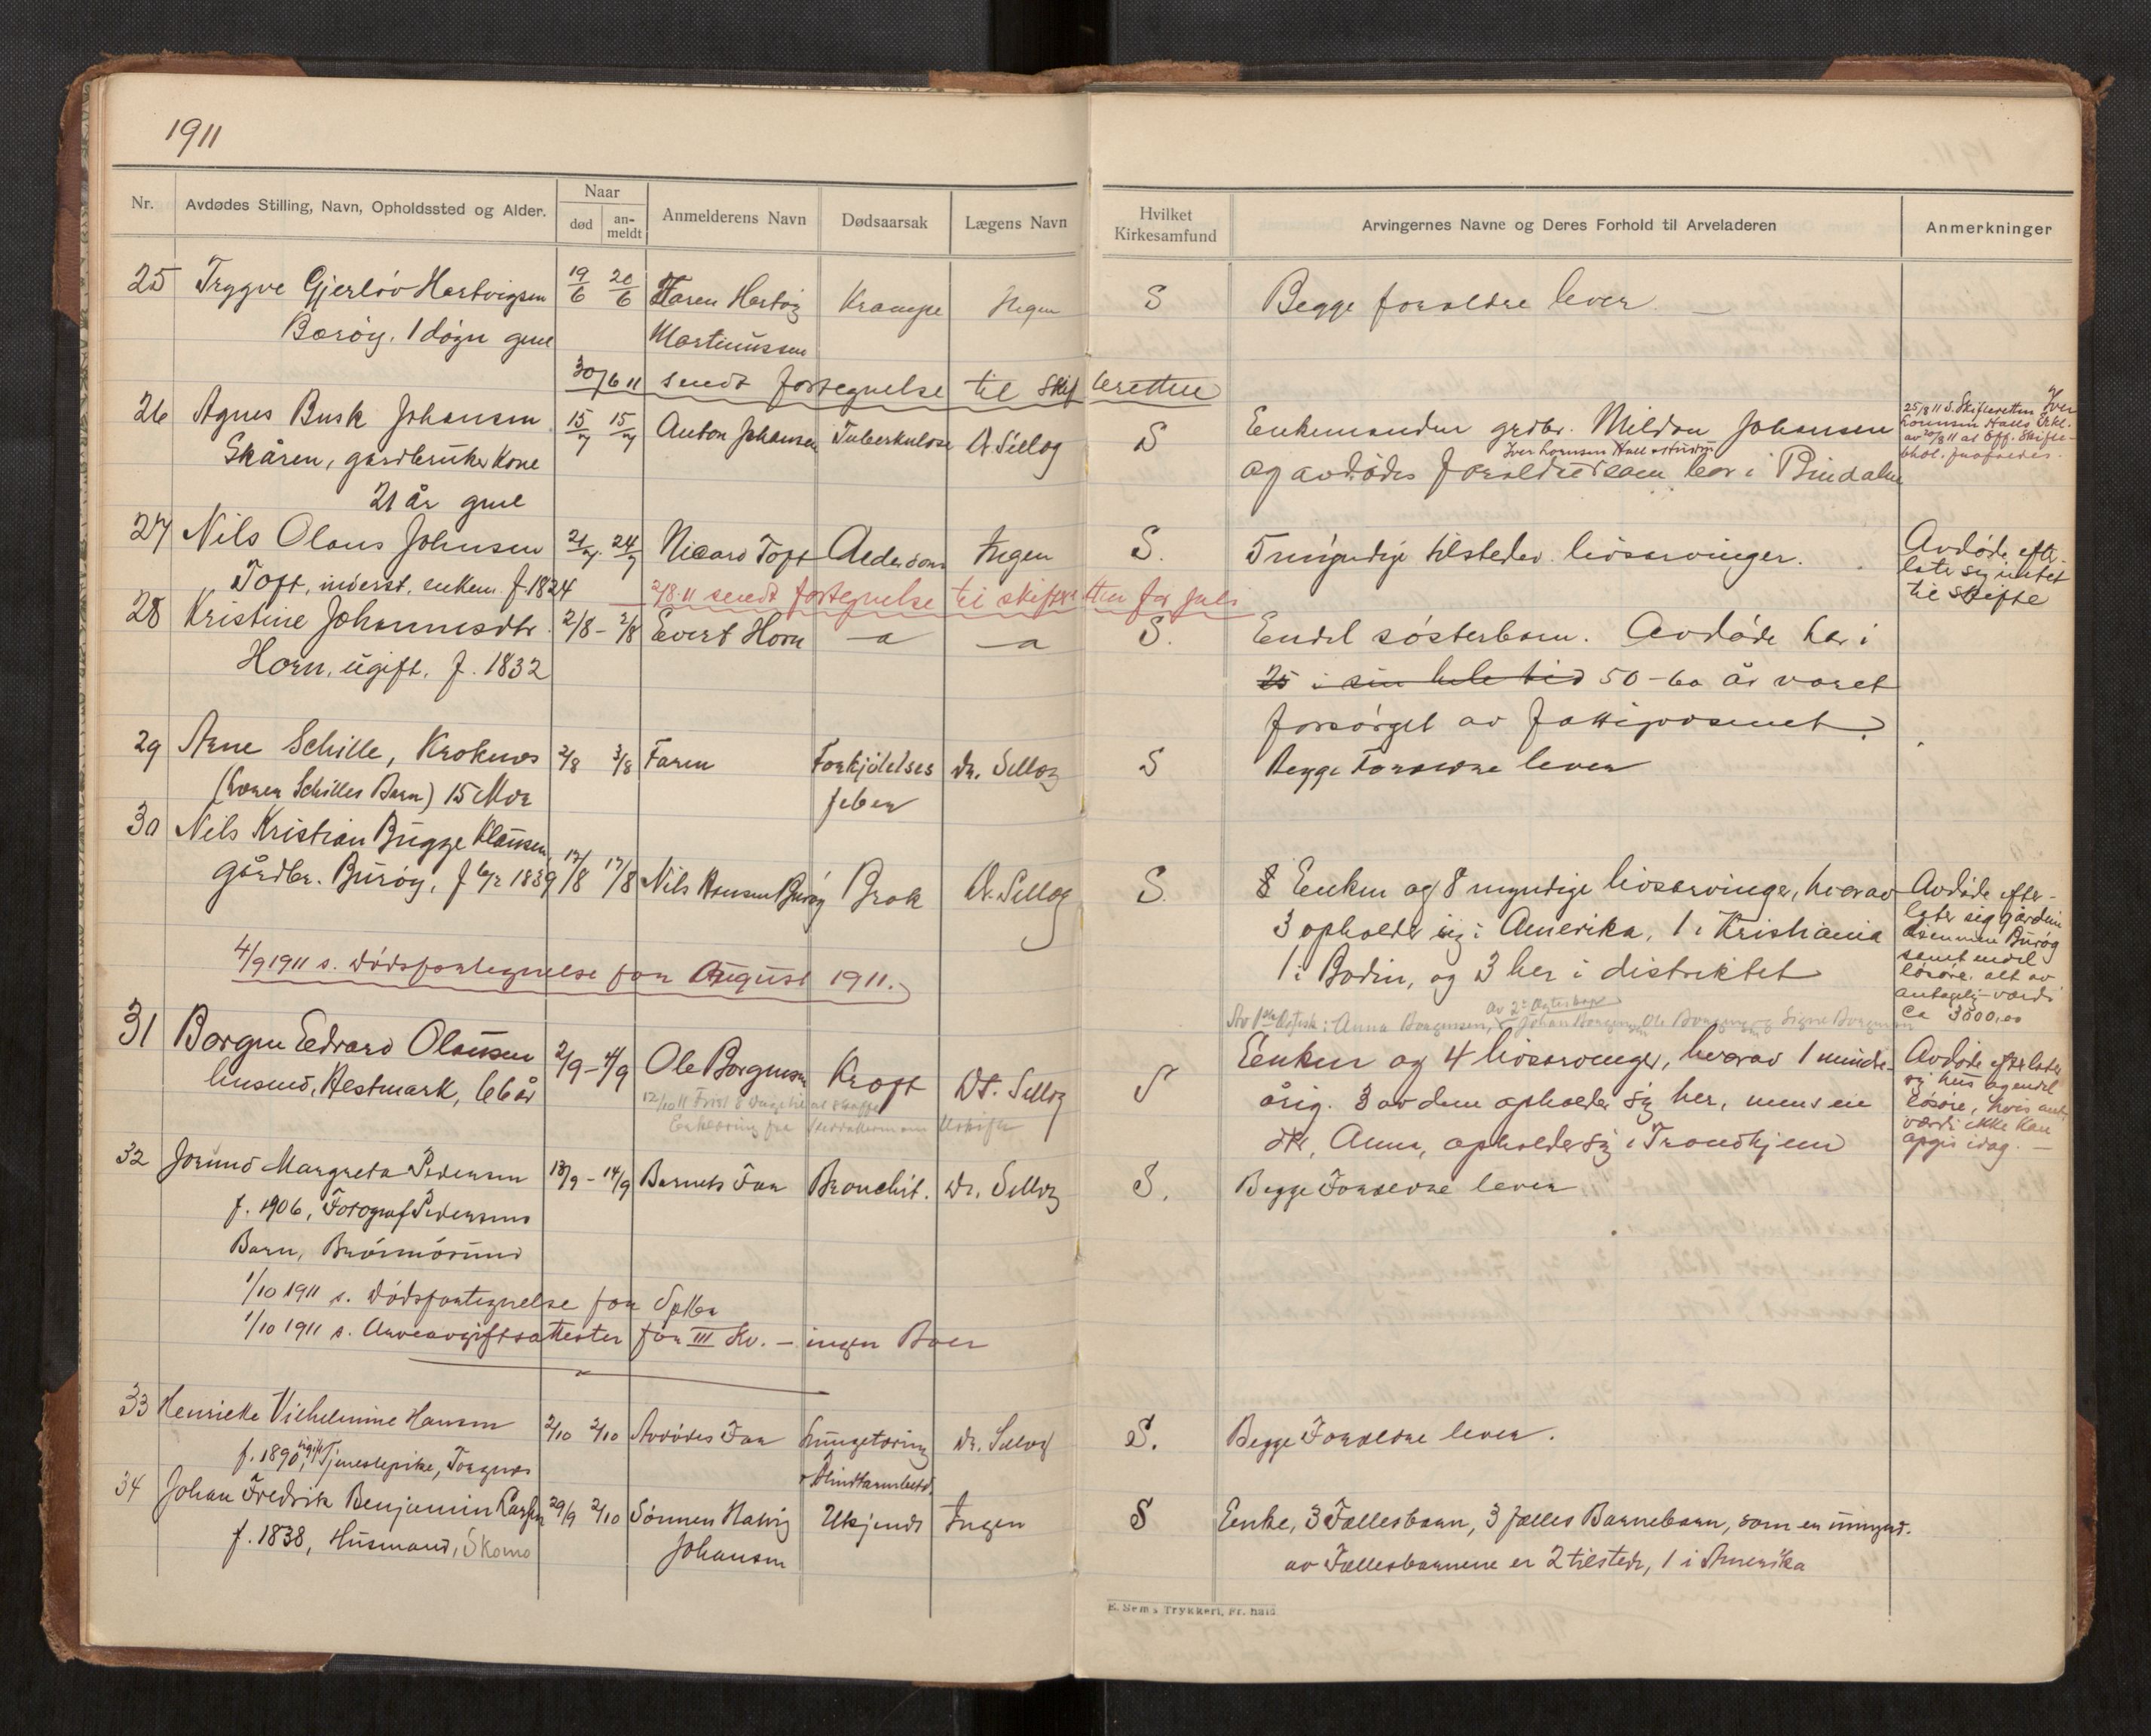 1911
Nr.
Avdødes Stilling, Navn, Opholdssted og Alder.
Naar
død
an-
meldt
Anmelderens Navn
Dødsaarsak
Lægens Navn
Hvilket
Kirkesamfund
Arvingernes Navne og Deres Forhold til Arveladeren
Anmerkninger
25 Trygve Gjerløv Hartvigsen 19/6 20/6 Faren Hartvig Krampe Ingen S Begge forældre lever
Børøy. 1 døgn gml Martinussen
30/6 11 sendt fortegnelse til skifteretten
26 Agnes Busk Johansen 15/7 15/7 Anton Johansen Tuberkulose Dr. Selleg S Enkemanden grdbr. Johansen
Skåren, gårdbruker Kone
og avdødes forældre som bor i Bindalen
Iver Lorensen Hall
21 år gml
25/8 11 s. Skifteretten Iver
Lorensen Halls Erkl.
av 20/8 11 at Off. Skifte-
27 Nils Olaus Johnsen 21/7 24/7 Nicard Toft Alderdom Ingen S. 5 myndige tilstedev. livsarvinger. Avdøde efter-
Toft, inderst, enkem. f. 1824
later sig intet
til skifte
2/8 11 sendt fortegnelse til skifteretten for juli
28 Kristine Johannesdtr. 2/8 - 2/8 Evert Horn — a — a S. Endel søsterbarn. Avdøde har i
Horn, ugift, f. 1832
25 i sin hele tid 50-60 år været
forsørget av fattigvæsenet.
29 Arne Schille, Kroknes 2/8 3/8 Faren Forkjølelses Dr. Selleg S Begge Forældre lever
(Lorenz Schilles Barn) 15 Mdr feber
30 Nils Kristian Bugge Klausen,
gårdbr. Burøy, f 6/2 1839 17/8 17/8 Nils Hansen Burøy Brok Dr. Selleg S. Enken og 8 myndige livsarvinger, hvorav
3 opholder sig i Amerika, 1 i Kristiania
1 i Bodin, og 3 her i distriktet
Avdøde efter-
later sig gården
Burøy
samt endel
løsøre. alt av
antagelig værdi
ca 3000,00
4/9 1911 s. Dødsfortegnelse for August 1911.
Av 1ste Ægtesk: Anna Borgensen, Johan Borgensen, Ole Borgensen og Signe Borgensen
Av 2. Ægteskap
31 Borgen Edvard Olaussen 2/9 - 4/9 Ole Borgensen Kræft Dr. Selleg S Enken og 4 livsarvinger, hvorav 1 minde-
husmd, Hestmark, 66 år
årig. 3 av dem opholder sig her, mens en
dtr, Anna, opholder sig i Trondhjem
12/10 11 Frist 8 Dage til at skaffe
Erklæring fra
Avdøde efterlater
sig hus og endel
løsøre, hvis ant.
værdi ikke kan
opgis idag. —
32 Jorund Margreta Pedersen 13/9 - 14/9 Barnets Far Bronchit. Dr. Selleg S. Begge Forældre lever
f. 1906, Fotograf Pedersens
Barn, Brønnøsund
1/10 1911 s. Dødsfortegnelse for Sptbr
1/10 1911 s. Arveavgiftsattester for III Kv. — ingen Boer
33 Henriette Vilhelmine Hansen 2/10 2/10 Avdødes Far Lungetæring Dr. Selleg S. Begge Forældre lever.
f. 1890, ugift Tjenestepike, Torgnes
34 Johan Fredrik Benjamin Larsen 29/9 2/10 Sønnen Halvig Ukjendt Ingen S Enke, 3 Fællesbarn, 3 fælles Barnebarn, som er umynd.
f. 1838, Husmand, Skomo Johansen
av Fællesbarnene er 2 tilstede, 1 i Amerika
E. Sem's Trykkeri, Fr.hald